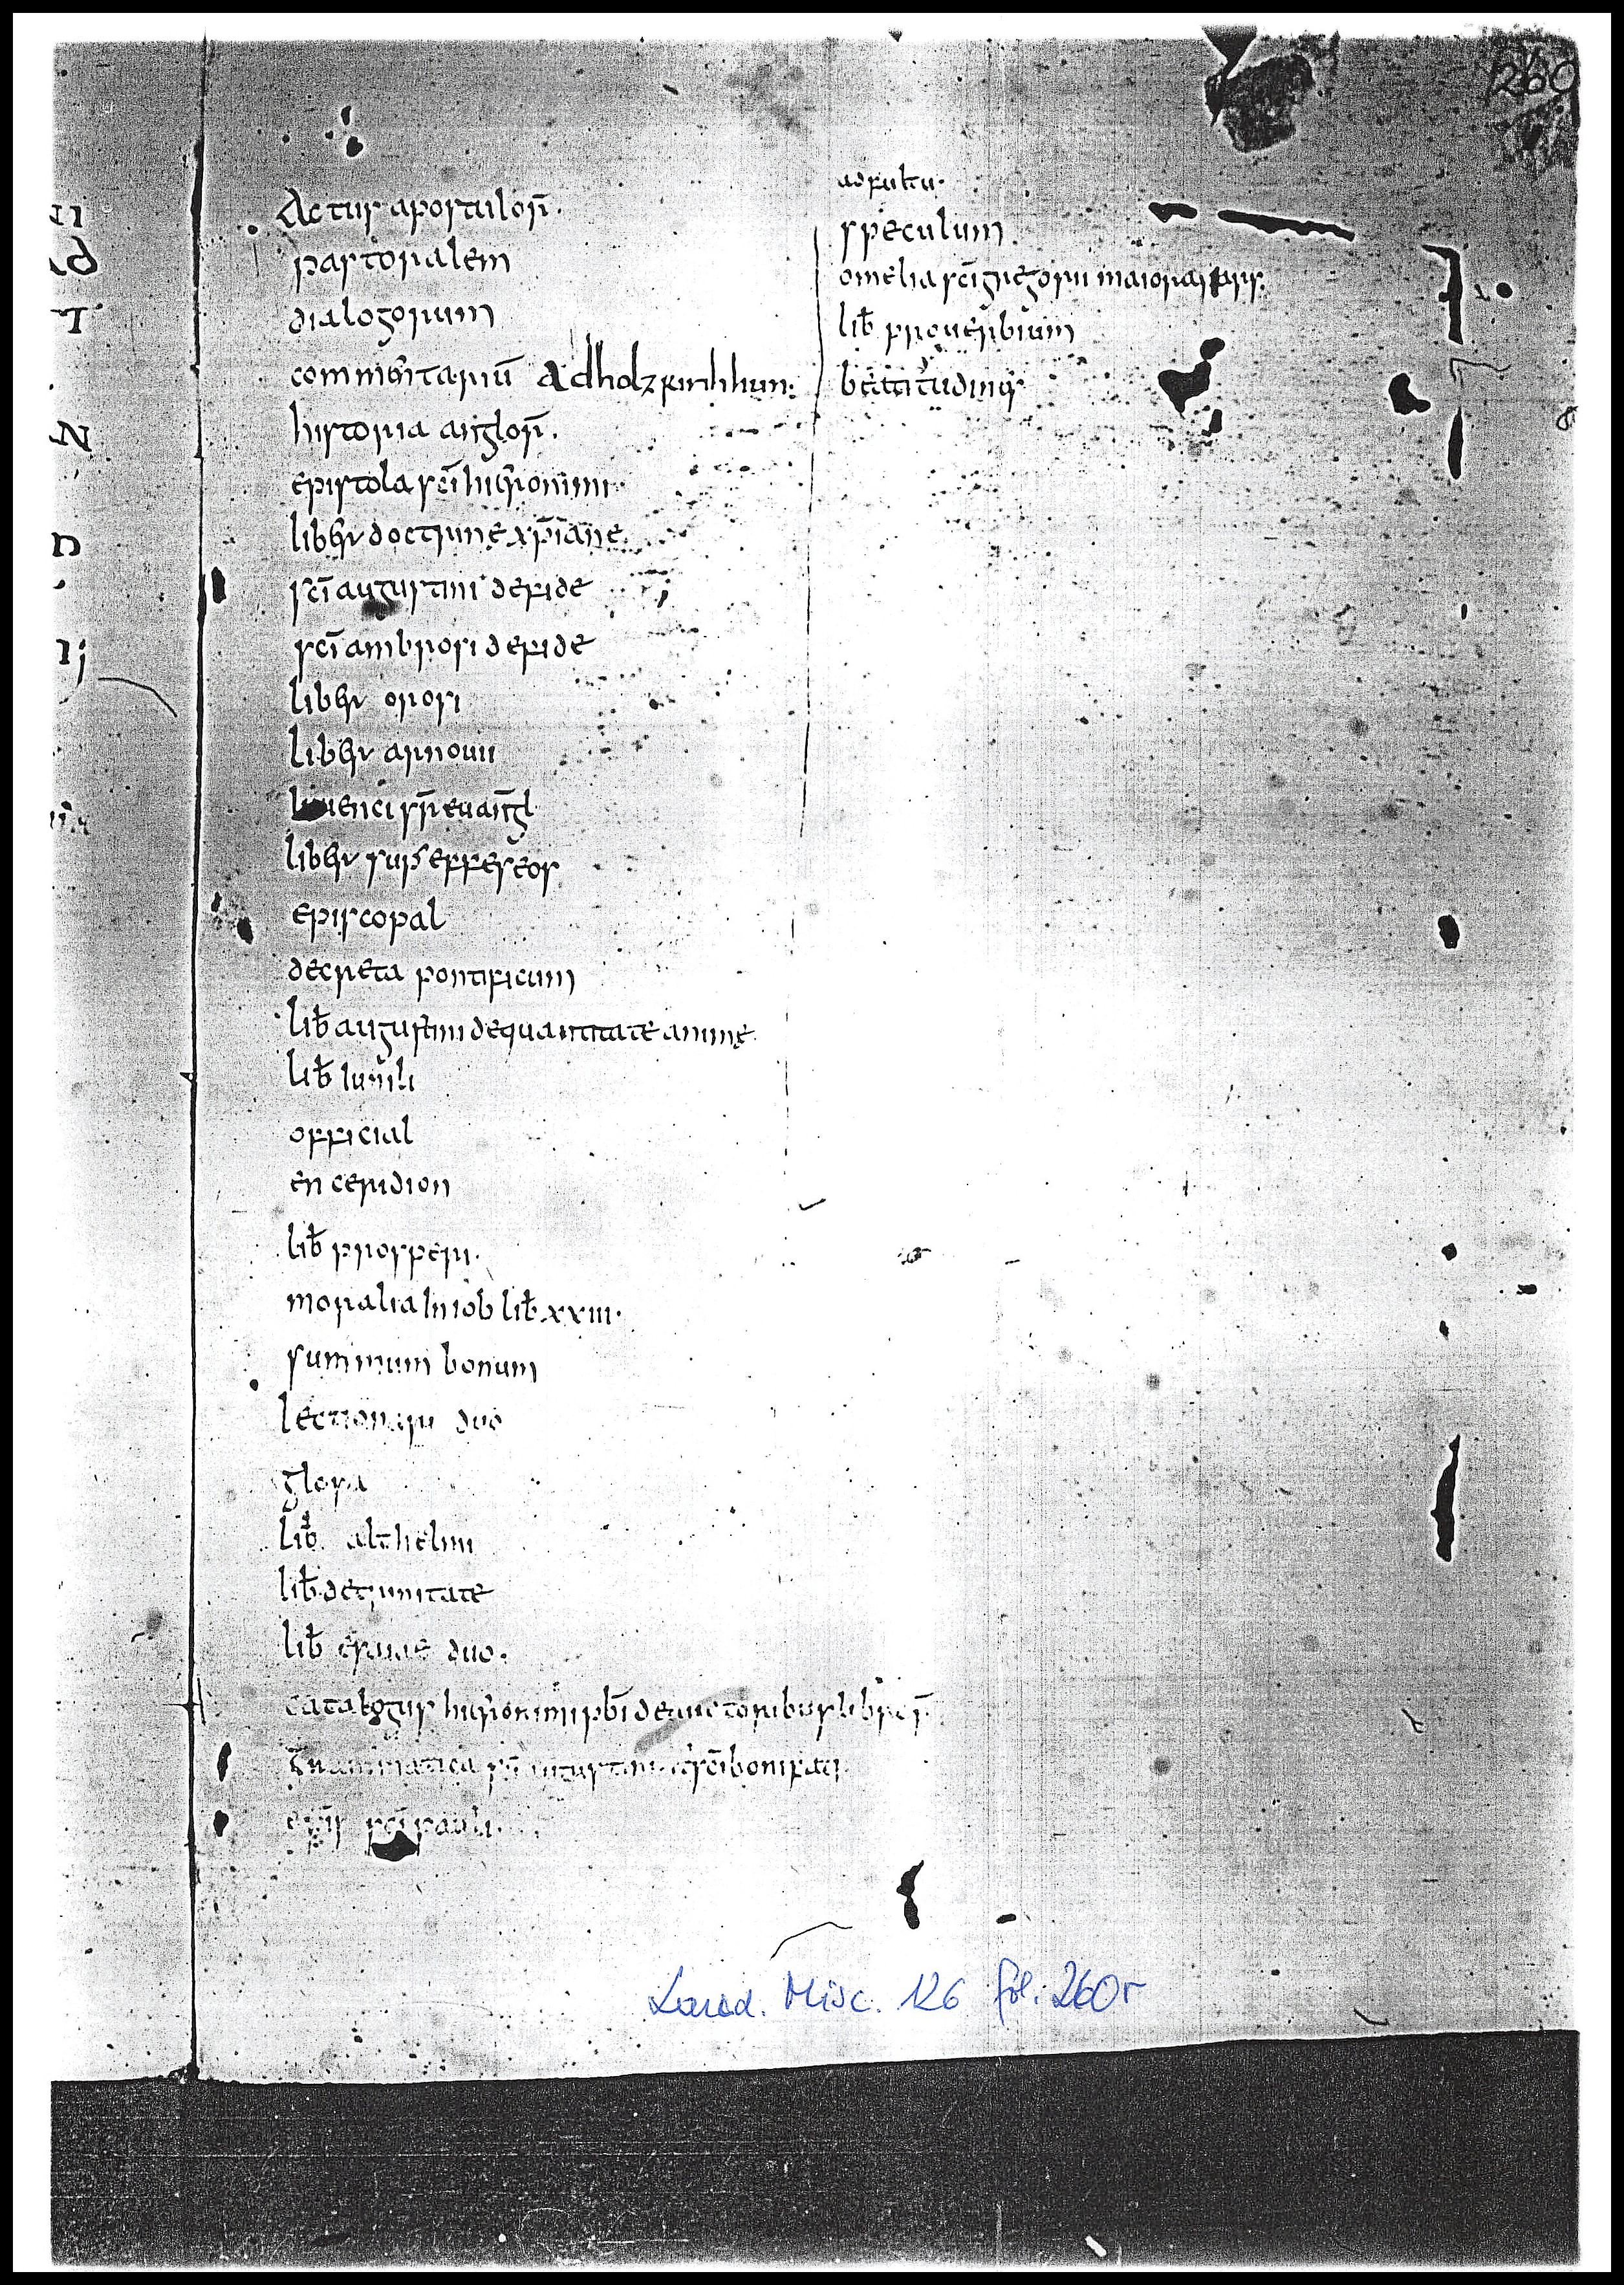 260
Actus apostulorū
pastoralem
dialogorum
commentariū Adholzkirihhun.
historia anglorū.
epistola sc̄i hieronimi
liber doctrine xp̄iane
sc̄i augustini defide
sc̄i ambrosi defide
liber orosi
liber arnovii
iuuenci sup̄ euangl
liber sup̄ effeseos
episcopal
decreta pontificum
lib̄ augustini dequantitate anime
lib̄ iunili
official
enceridion
lib̄ prosperi.
moralia in iob lib̄ xxiii.
summum bonum
lectionari duo
glosa
lib̄ althelmi
lib̄ detrinitate
lib̄ esaiae duo.
catalogus hieronimi pb̄i deauctoribus libroR̄
Grammatica sc̄i augustini et sc̄i bonifati
sc̄i pauli
adfultu.
speculum
omelia sc̄i gregorii maiora pars
lib̄ proverbium
beatitudines
Laud. Misc. 126 fol. 260r